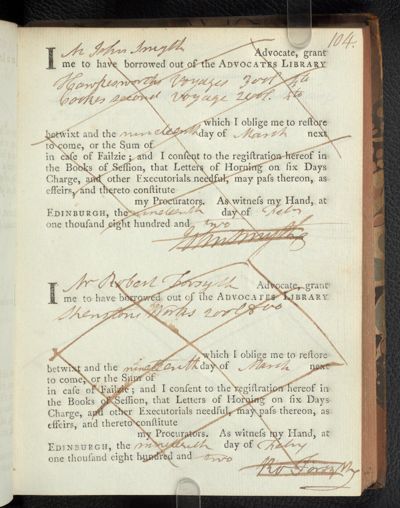 104.
I Mr John Smyth Advocate, grant
me to have borrowed out of the ADVOCATES LIBRARY
Hawkesworths Voyages 3 vol. 4to
Cookes second Voyage 2 vol. 4to
which I oblige me to reſtore
betwixt and the nineteenth day of March next
to come, or the Sum of
in caſe of Failzie; and I conſent to the regiſtration hereof in
the Books of Seſſion, that Letters of Horning on ſix Days
Charge, and other Executorials needful, may paſs thereon, as
effeirs, and thereto conſtitute
my Procurators. As witneſs my Hand, at
EDINBURGH, the nineteenth day of Febry
one thouſand eight hundred and two
John Smyth
I Mr Robert Forsyth Advocate, grant
me to have borrowed out of the ADVOCATES LIBRARY
Shenstone Works 2 vol 8vo
which I oblige me to reſtore
betwixt and the nineteenth day of March next
to come, or the Sum of
in caſe of Failzie; and I conſent to the regiſtration hereof in
the Books of Seſſion, that Letters of Horning on ſix Days
Charge, and other Executorials needful, may paſs thereon, as
effeirs, and thereto conſtitute
my Procurators. As witneſs my Hand, at
EDINBURGH, the nineteenth day of Febry
one thouſand eight hundred and two
Ro. Forsyth